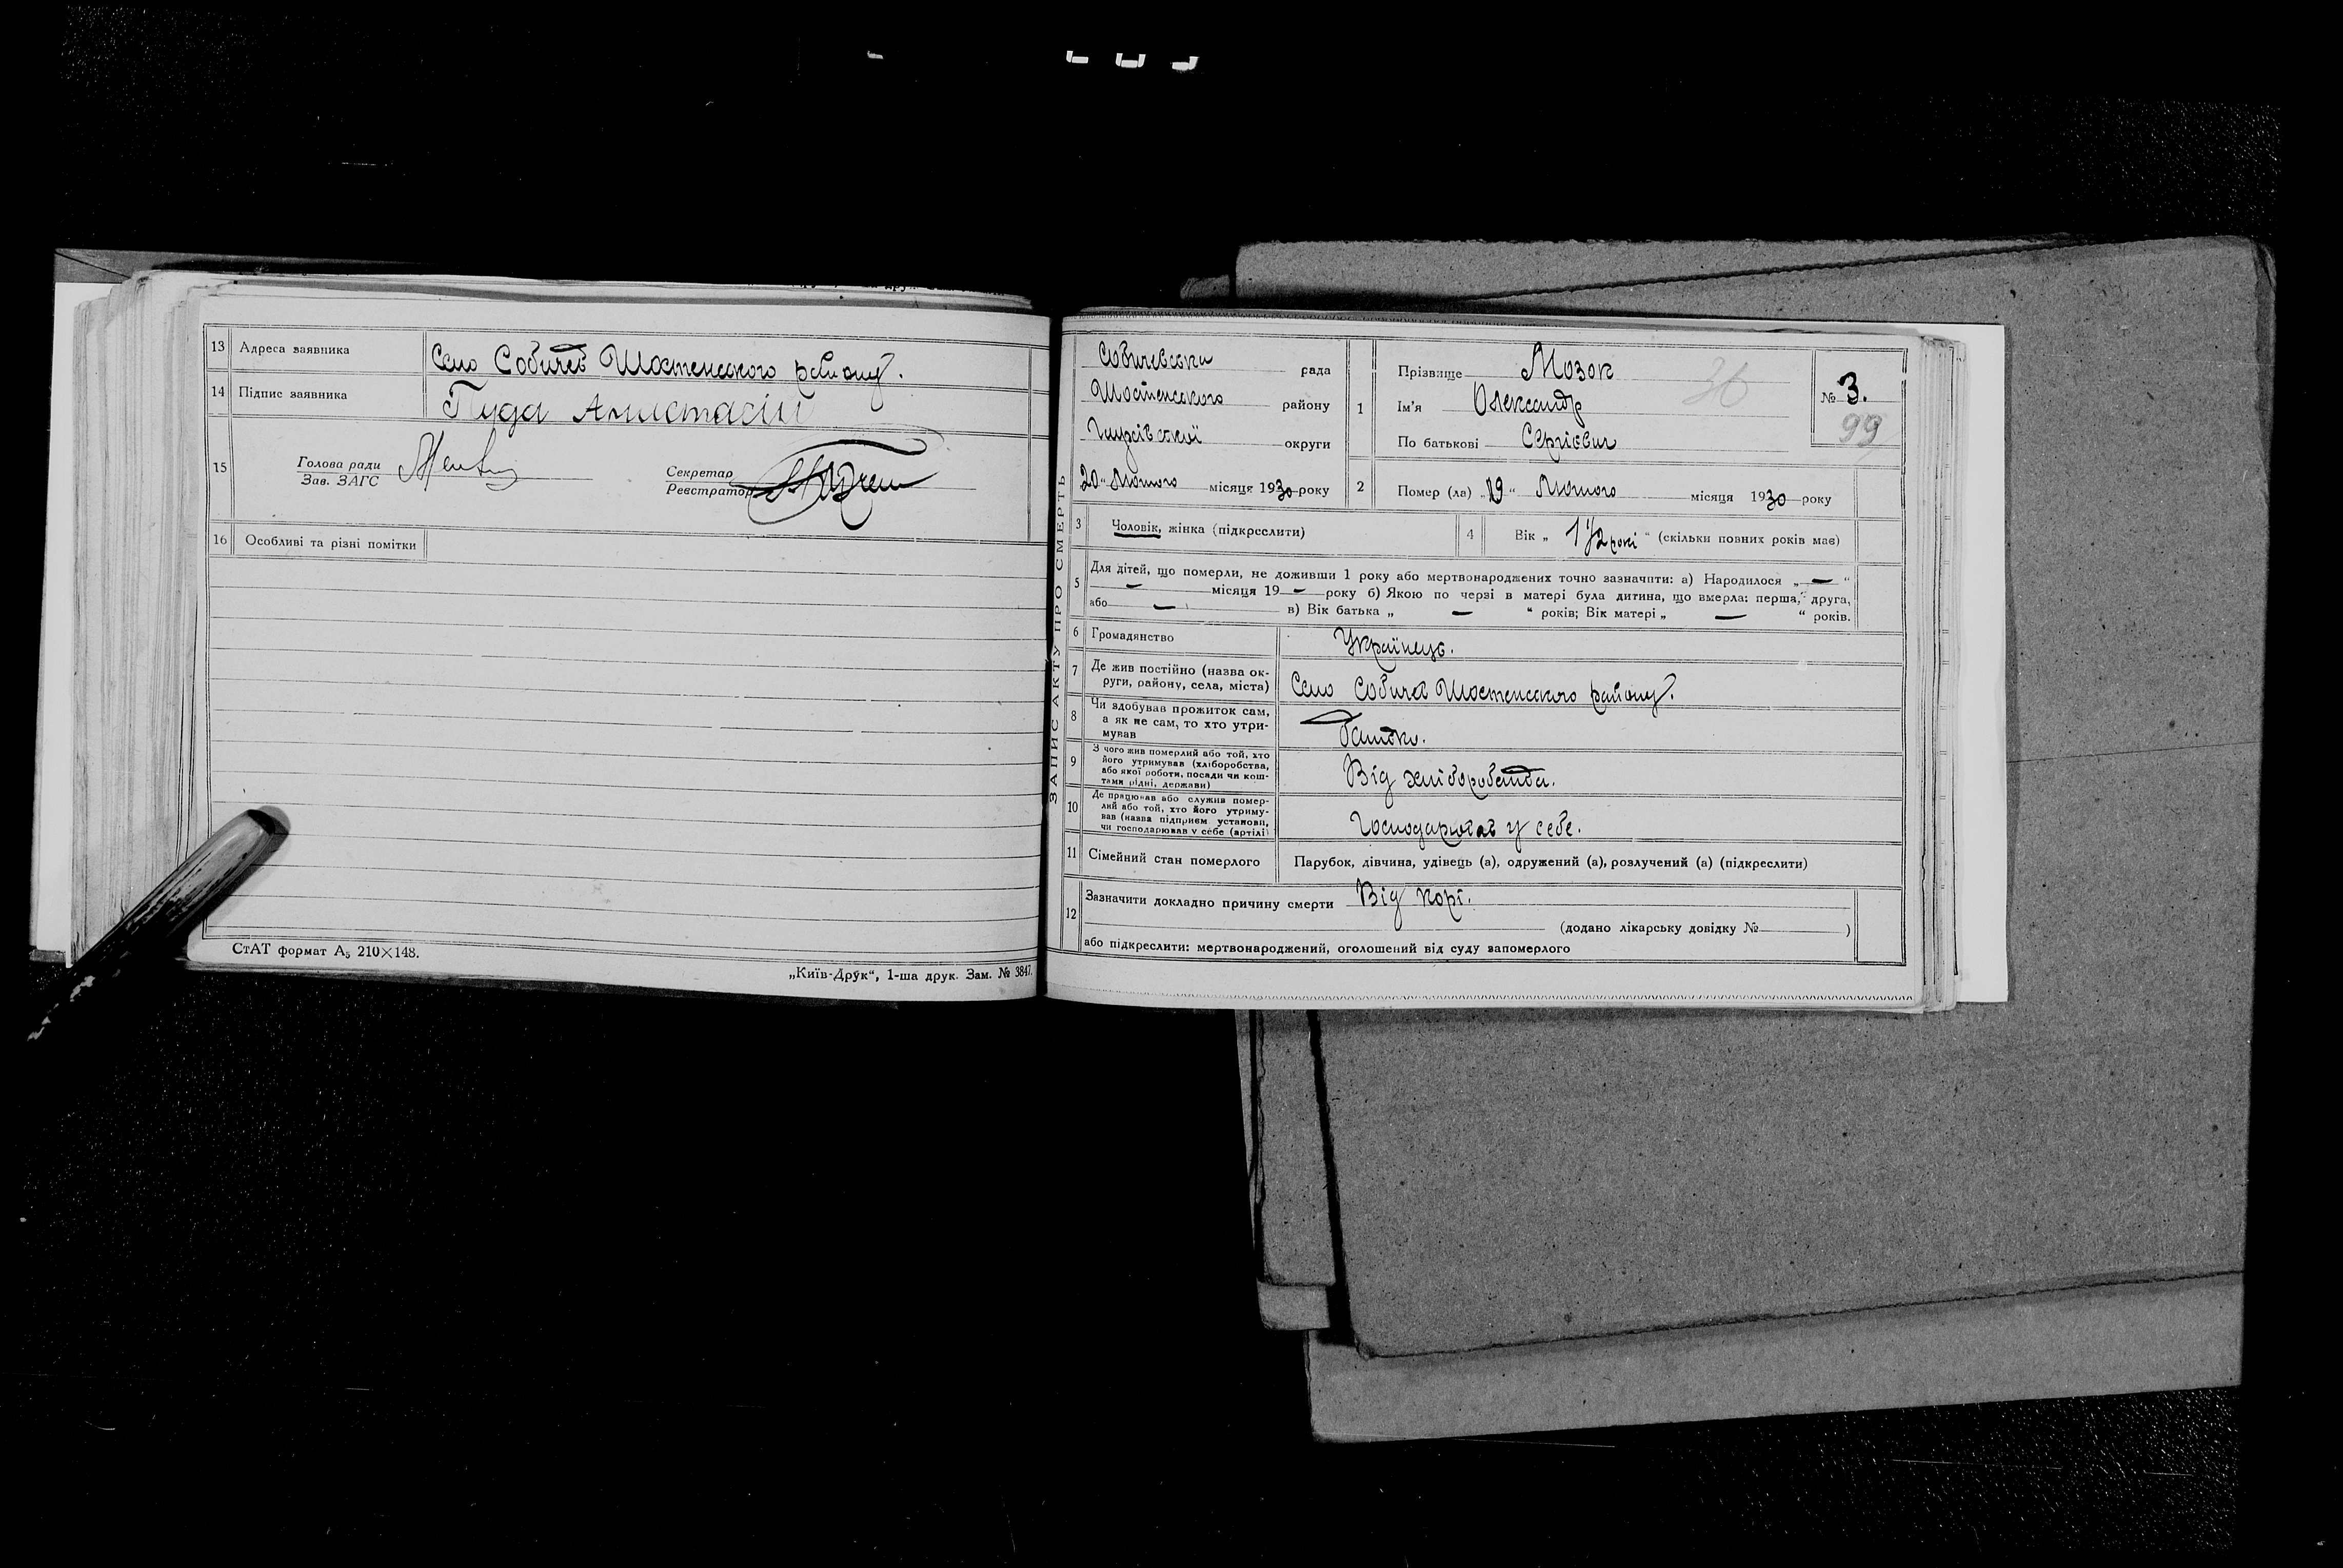 13 Адреса заявника Село Собичев Шостенського району.
14 Підпис заявника Пуда Анистасіи
15 Голова ради
Зав. ЗАГС
Секретар
Реєстратор
16 Особливі та різні помітки
СтАТ формат А5 210×148.
„Київ-Друк“, 1-ша друк. Зам. № 3847.
ЗАПИС АКТУ ПРО СМЕРТЬ
Собичевська рада
Шостенського району
Глухівської округи
20 „ Лютого місяця 1930 року
1 Прізвище Мозок 36
Ім'я Олександр
По батькові Сергієвич
№ 3.
99
2 Помер (ла) „19“ Лютого місяця 1930 року
3 Чоловік, жінка (підкреслити)
4 Вік „ 1 1/2 рокі “ (скільки повних років має)
5 Для дітей, що померли, не доживши 1 року або мертвонароджених точно зазначити: а) Народилося „ — “
— місяця 19 — року б) Якою по черзі в матері була дитина, що вмерла: перша, друга,
або — в) Вік батька „ — “ років; Вік матері „ — “ років.
6 Громадянство Українець.
7 Де жив постійно (назва округи, району, села, міста) Село Собичев Шостенського району.
8 Чи здобував прожиток сам,
а як не сам, то хто утри-
мував Батько.
9 З чого жив померлий або той, хто
його утримував (хліборобства,
або якої роботи, посади чи кош-
тами рідні, держави) Від хліборобства.
10 Де працював або служив помер-
лий або той, хто його утриму-
вав (назва підприєм. установи,
чи господарював у себе (артілі) Господарював у себе.
11 Сімейний стан померлого Парубок, дівчина, удівець (а), одружений (а), розлучений (а) (підкреслити)
12 Зазначити докладно причину смерти Від корі.
(додано лікарську довідку № )
або підкреслити: мертвонароджений, оголошений від суду запомерлого